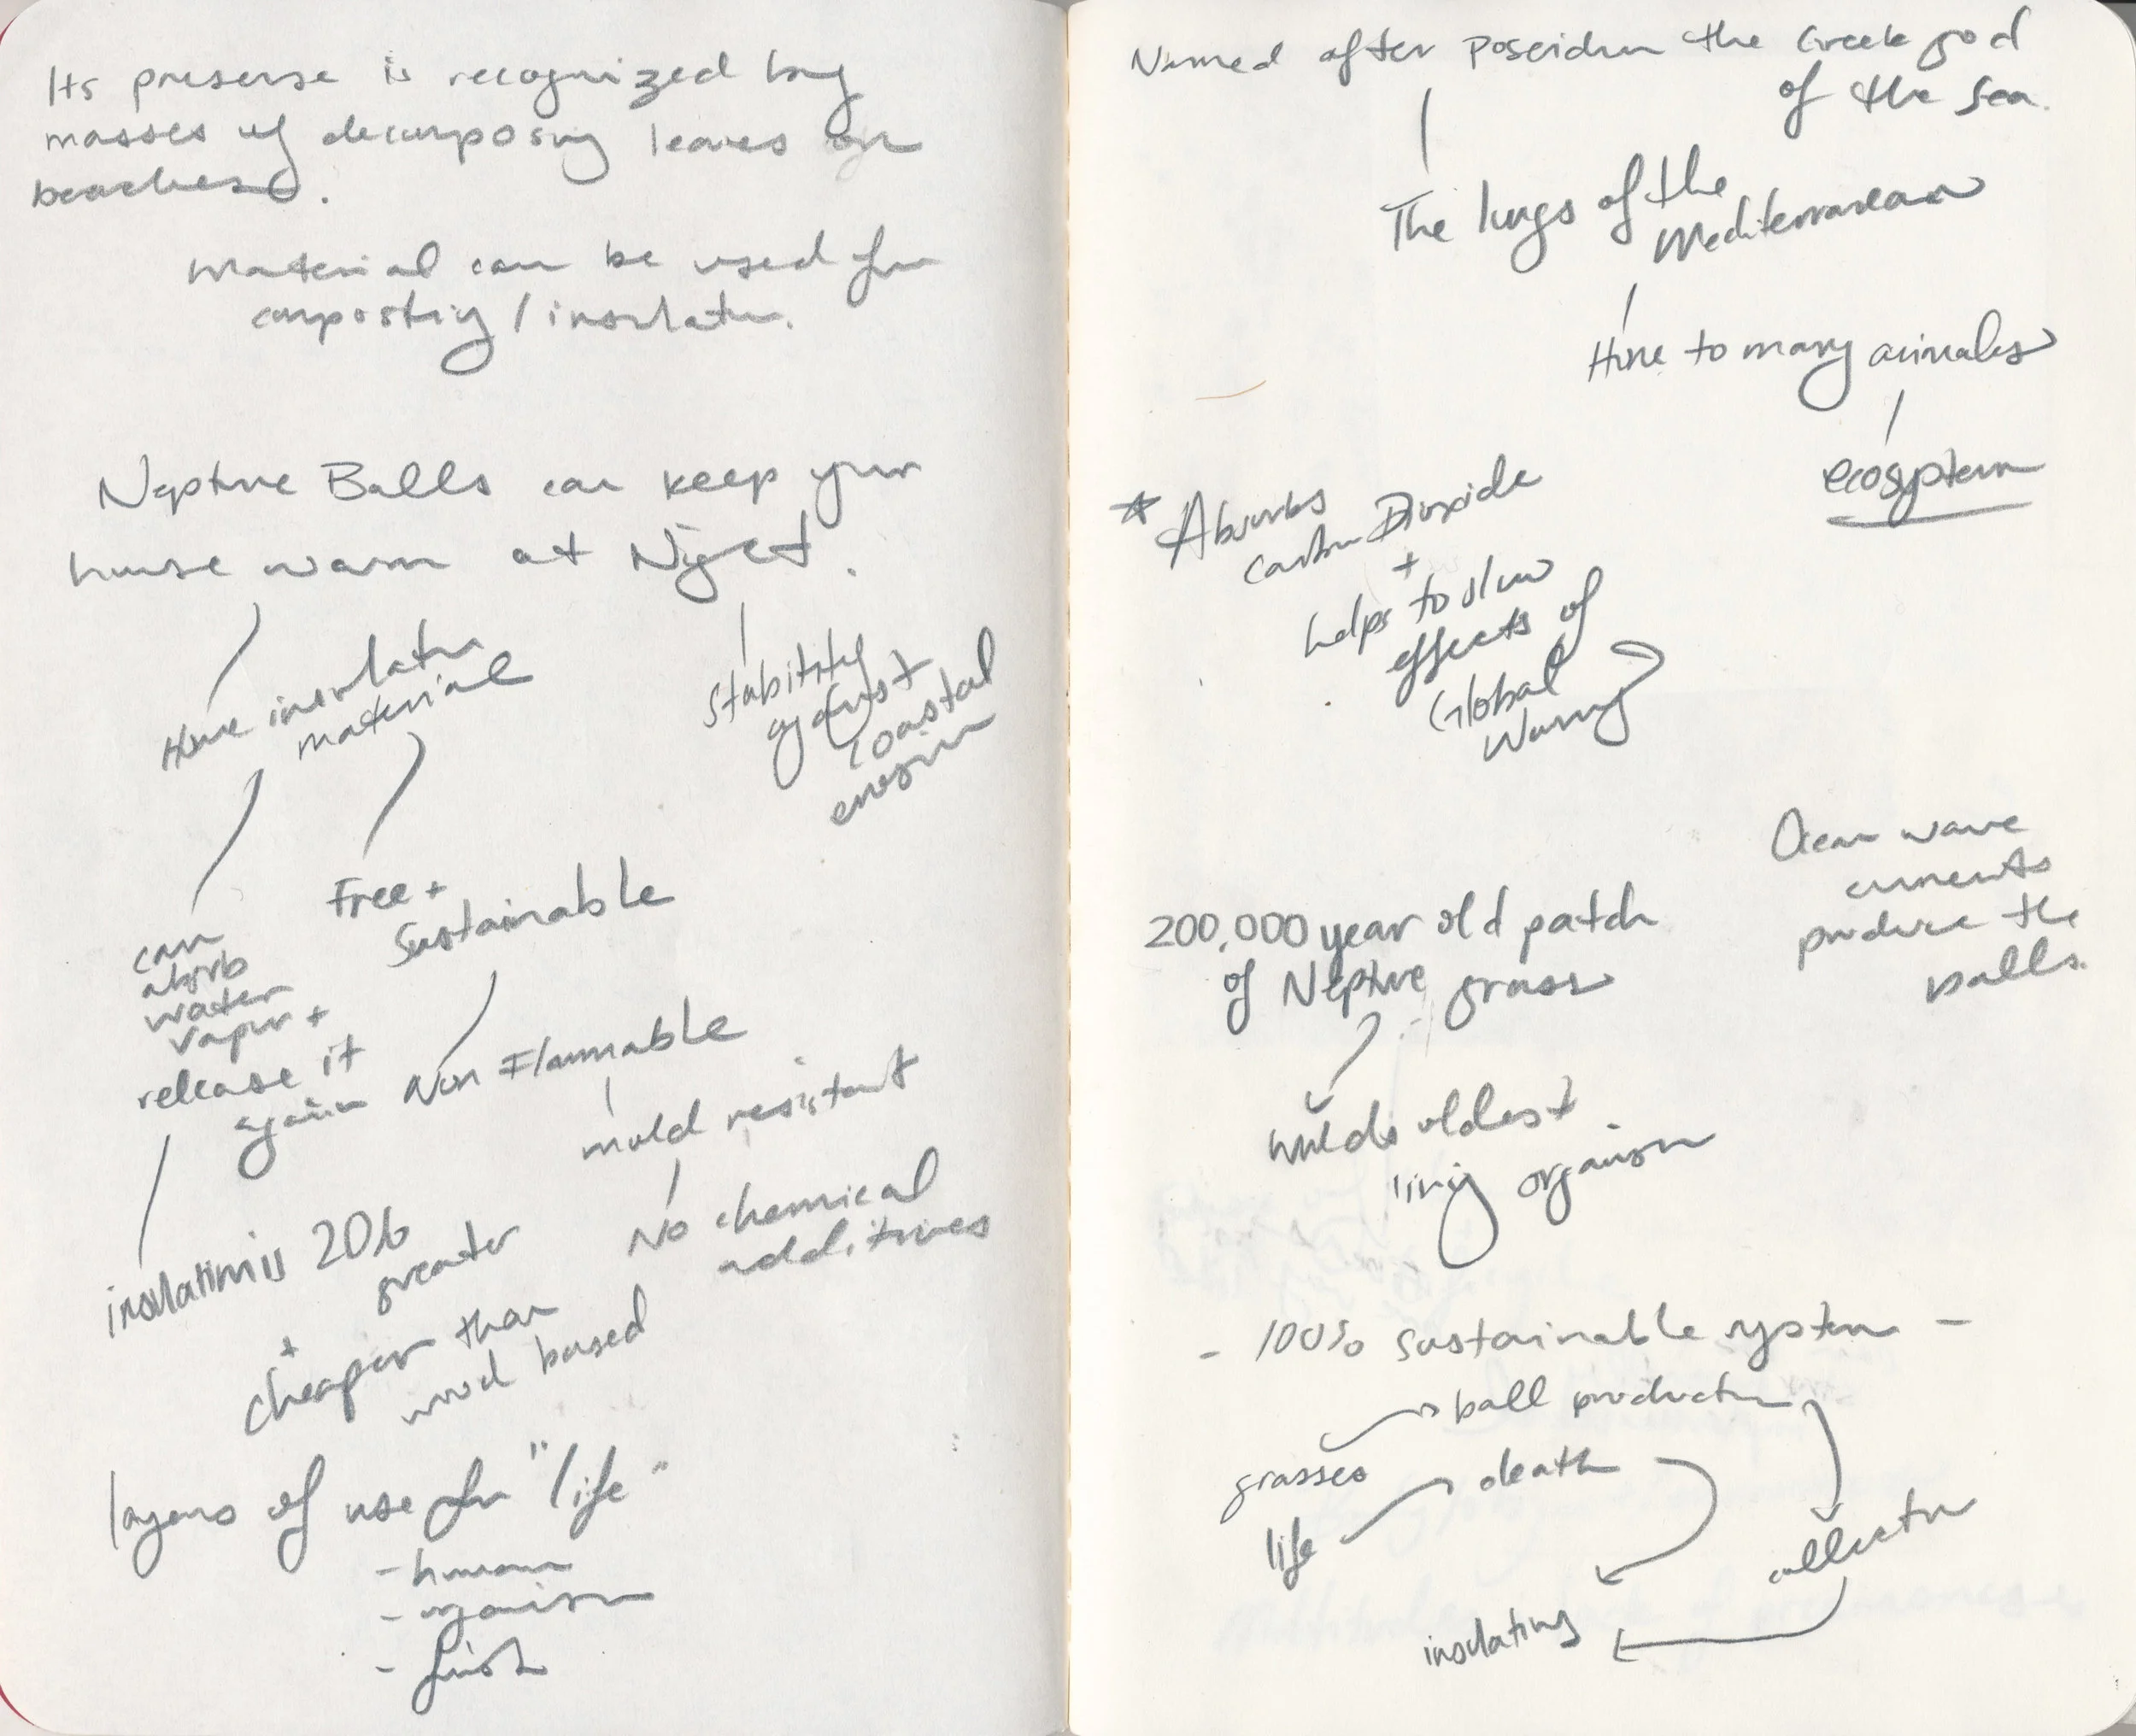 Its presense is recognized by
masses of decomposing leaves on
beaches.
Material can be used for
composting / insulation.
Neptune Balls can keep your
house warm at Night.
Home insulation
material
stability
against
coastal
erosion
Free +
Sustainable
can
absorb
water
vapor +
release it
again
Non Flammable
mold resistant
No chemical
additives
insulation is 20%
greater
+
cheaper than
wood based
layers of use for "life"
- human
- organism
-
Named after Poseidon the Greek god
of the Sea.
The lungs of the
Mediterranean
Home to many animales
ecosystem
* Absorbs
Carbon Dioxide
+
helps to slow
effects of
Global
Warming
Ocean wave
currents
produce the
balls.
200,000 year old patch
of Neptune grass
worlds oldest
living organism
- 100% sustainable system -
ball production
grasses
death
life
collection
insulating